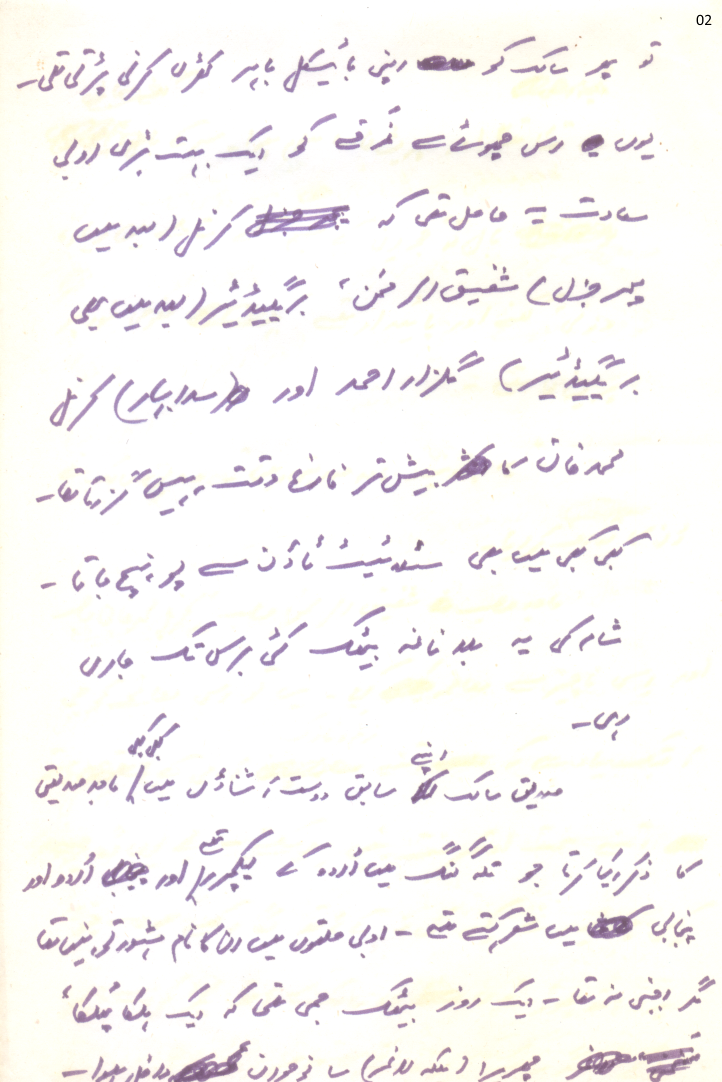 02
تو پھر سالک کو اپنی بائیسکل باہر کھڑی کرنی پڑتی تھی۔
یوں اس چھوٹے سے کمرے کو ایک بہت بڑی ادبی
سعادت یہ حاصل تھی کہ کرنل (بعد میں
پھر جنرل) شفیق الرحمٰن، بریگیڈئیر (بعد میں بھی
بریگیڈئیر) گلزار احمد اور (سدابہار) کرنل
محمد خان کا بیش تر فارغ وقت یہیں گزرتا تھا۔
کبھی کبھی میں بھی سٹلائیٹ ٹاؤن سے پہنچ جاتا۔
شام کی یہ بیٹھک کئی برس تک جاری
رہی۔
صدیق سالک اپنے سابق دوست آشناؤں میں کبھی کبھی ماجد صدیقی
کا ذکر کیا کرتا جو تلہ گنگ میں اُردو کے لیکچرر تھے اور اُردو اور
پنجابی میں شعر کہتے تھے۔ ادبی حلقوں میں ان کا نام مشہور تو نہیں تھا
مگر اجنبی نہ تھا۔ ایک روز بیٹھک جمی تھی کہ ایک ہلکا پُھلکا
چھریرا (بلکہ لاغر) سا نوجوان داخل ہوا۔